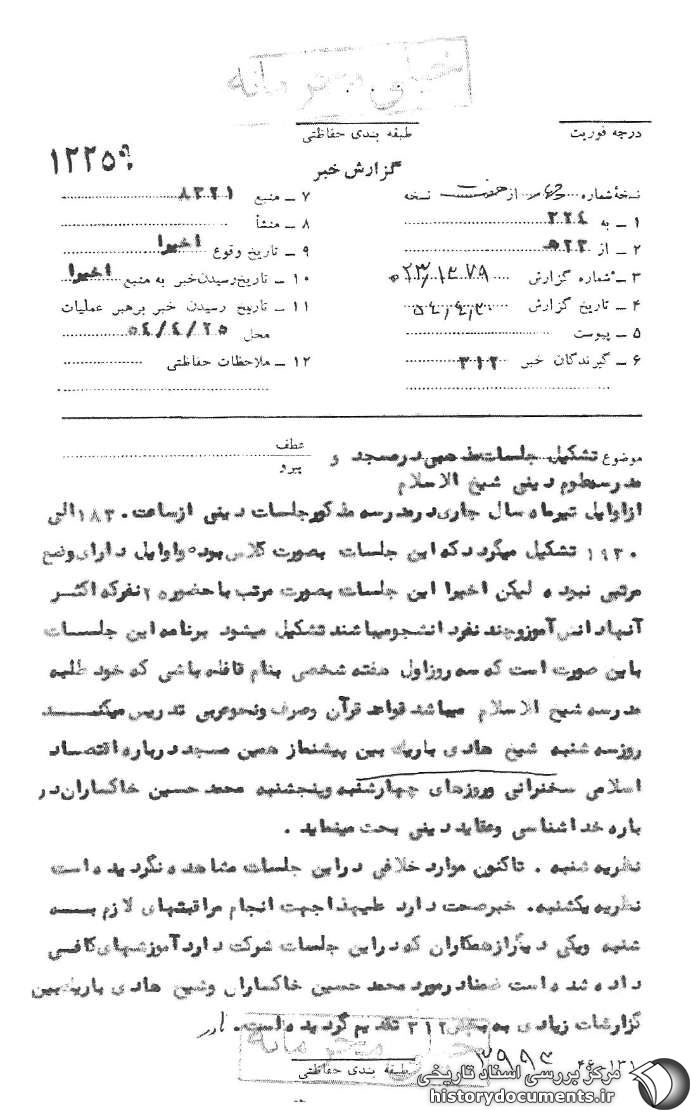 خیلی محرمانه
درجه فوریت
طبقه بندی حفاظتی
۱۲۲۵۹
گزارش خبر
نسخهٔ شماره از هفت نسخه
۱ ـ به ۲۲۴
۲ ـ از ۵۲۲
۳ ـ شماره گزارش
۴ ـ تاریخ گزارش
۵ ـ پیوست
۶ ـ گیرندگان خبر ۳۱۲
۷ ـ منبع ۸۲۲۱
۸ ـ منشأ
۹ ـ تاریخ وقوع اخیرا
۱۰ ـ تاریخ رسیدن خبر به منبع اخیرا
۱۱ ـ تاریخ رسیدن خبر برهبر عملیات
محل ۵۴/۴/۲۵
۱۲ ـ ملاحظات حفاظتی
موضوع تشکیل جلسات مذهبی در مسجد و
مدرسه علوم دینی شیخ الاسلام
عطف
پیرو
از اوایل تیرماه سال جاری در مدرسه مذکور جلسات دینی از ساعت ۱۸۳۰ الی
۱۹۳۰ تشکیل میگردد که این جلسات بصورت کلاس بوده و اوایل دارای وضع
مرتبی نبوده لیکن اخیرا این جلسات بصورت مرتب با حضور ۲۰ نفر که اکثر
آنها دانش آموز و چند نفر دانشجو میباشند تشکیل میشود برنامه این جلسات
باین صورت است که سه روز اول هفته شخصی بنام قافله باشی که خود طلبه
مدرسه شیخ الاسلام میباشد قواعد قرآن و صرف و نحو عربی تدریس میکند
روز سه شنبه شیخ هادی باریک بین پیشنماز همین مسجد درباره اقتصاد
اسلامی سخنرانی و روزهای چهارشنبه و پنجشنبه محمد حسین خاکساران در
باره خداشناسی و عقاید دینی بحث مینماید .
نظریه شنبه . تاکنون موارد خلافی در این جلسات مشاهده نگردیده است
نظریه یکشنبه . خبر صحت دارد علیهذا جهت انجام مراقبتهای لازم به
شنبه و یکی دیگر از همکاران که در این جلسات شرکت دارد آموزشهای کافی
داده شده است ضمنا در مورد محمد حسین خاکساران و شیخ هادی باریک بین
گزارشات زیادی به بخش ۳۱۲ تقدیم گردیده است .
خیلی محرمانه
طبقه بندی حفاظتی
مرکز بررسی اسناد تاریخی
historydocuments.ir